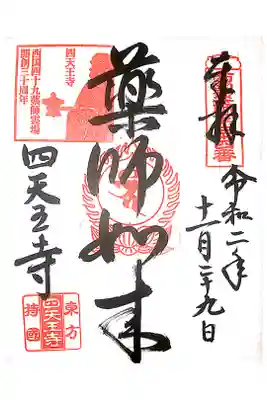 奉拝
令和二年
十一月二十九日
薬師如来
四天王寺
四天王寺
西国四十九薬師霊場
開創三十周年
東方
四天王寺
持国